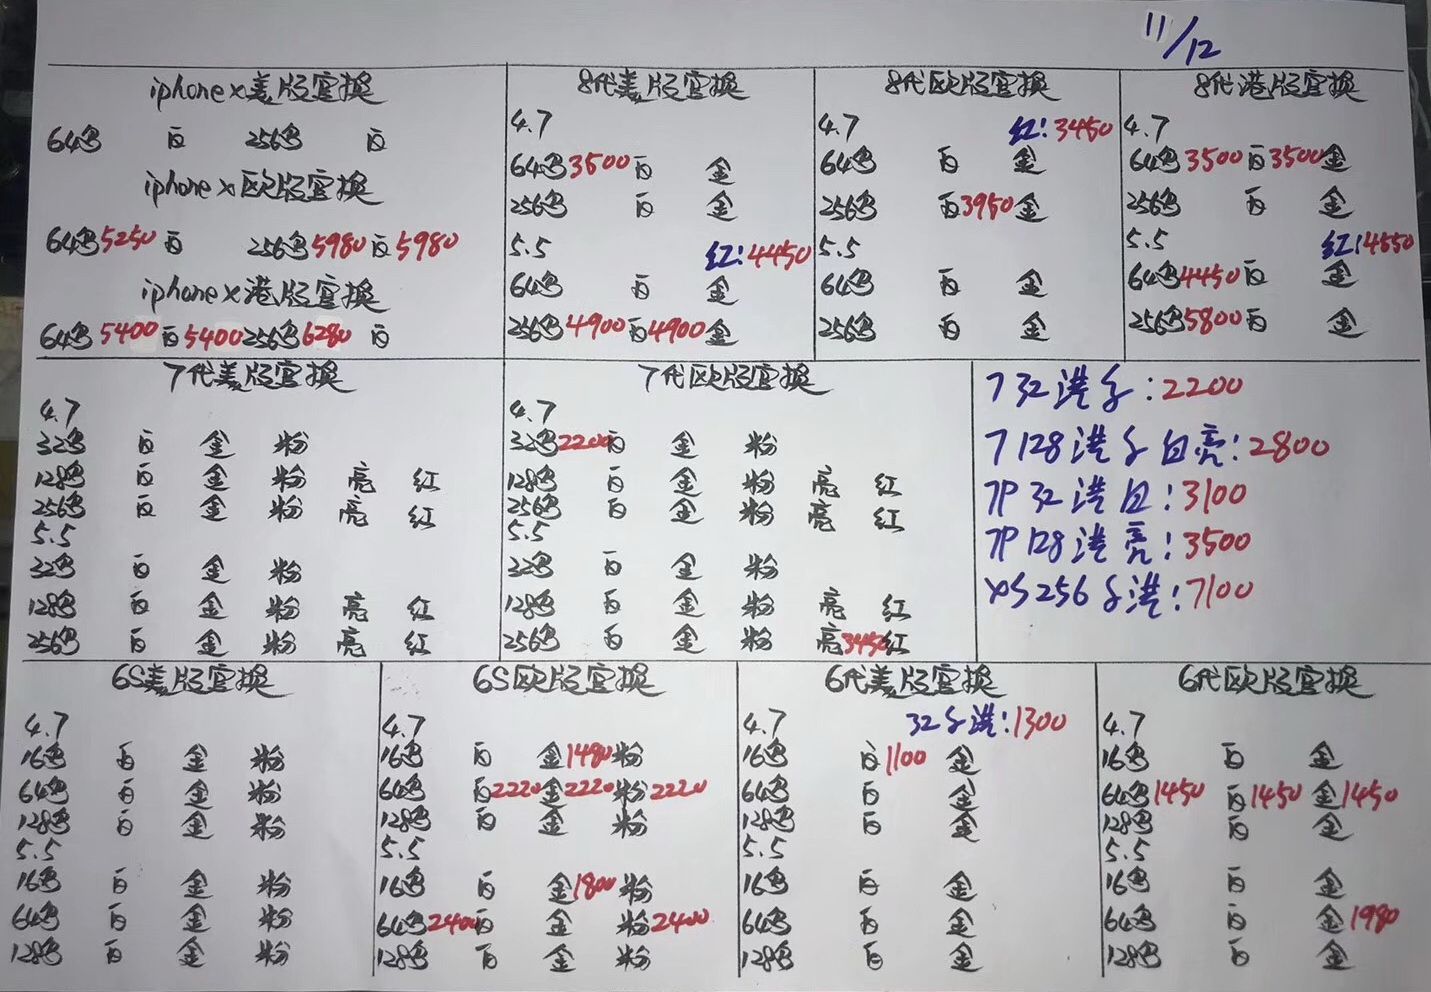 11/12
iphone x美版官换
64色 白 256色 白
iphone x欧版官换
64色5250白 256色5980白5980
iphone x港版官换
64色5400白5400 256色6280白
8代美版官换
4.7
64色3500白 金
256色 白 金
5.5 红:4450
64色 白 金
256色4900白4900金
8代欧版官换
4.7 红:3450
64色 白 金
256色 白3950金
5.5
64色 白 金
256色 白 金
8代港版官换
4.7
64色3500白3500金
256色 白 金
5.5 红:4550
64色4450白 金
256色5800白 金
7代美版官换
4.7
32色 白 金 粉
128色 白 金 粉 亮 红
256色 白 金 粉 亮 红
5.5
32色 白 金 粉
128色 白 金 粉 亮 红
256色 白 金 粉 亮 红
7代欧版官换
4.7
32色2200白 金 粉
128色 白 金 粉 亮 红
256色 白 金 粉 亮 红
5.5
32色 白 金 粉
128色 白 金 粉 亮 红
256色 白 金 粉 亮3450红
7 32港:2200
7 128港白亮:2800
7P 32港白:3100
7P 128港亮:3500
XS 256港:7100
6S美版官换
4.7
16色 白 金 粉
64色 白 金 粉
128色 白 金 粉
5.5
16色 白 金 粉
64色 白 金 粉
128色 白 金 粉
6S欧版官换
4.7
16色 白 金1480粉
64色 白2220金2220粉2220
128色 白 金 粉
5.5
16色 白 金1800粉
64色2400白 金 粉2400
128色 白 金 粉
6代美版官换
4.7 32港:1300
16色 白1100金
64色 白 金
128色 白 金
5.5
16色 白 金
64色 白 金
128色 白 金
6代欧版官换
4.7
16色 白 金
64色1450白1450金1450
128色 白 金
5.5
16色 白 金
64色 白 金1980
128色 白 金